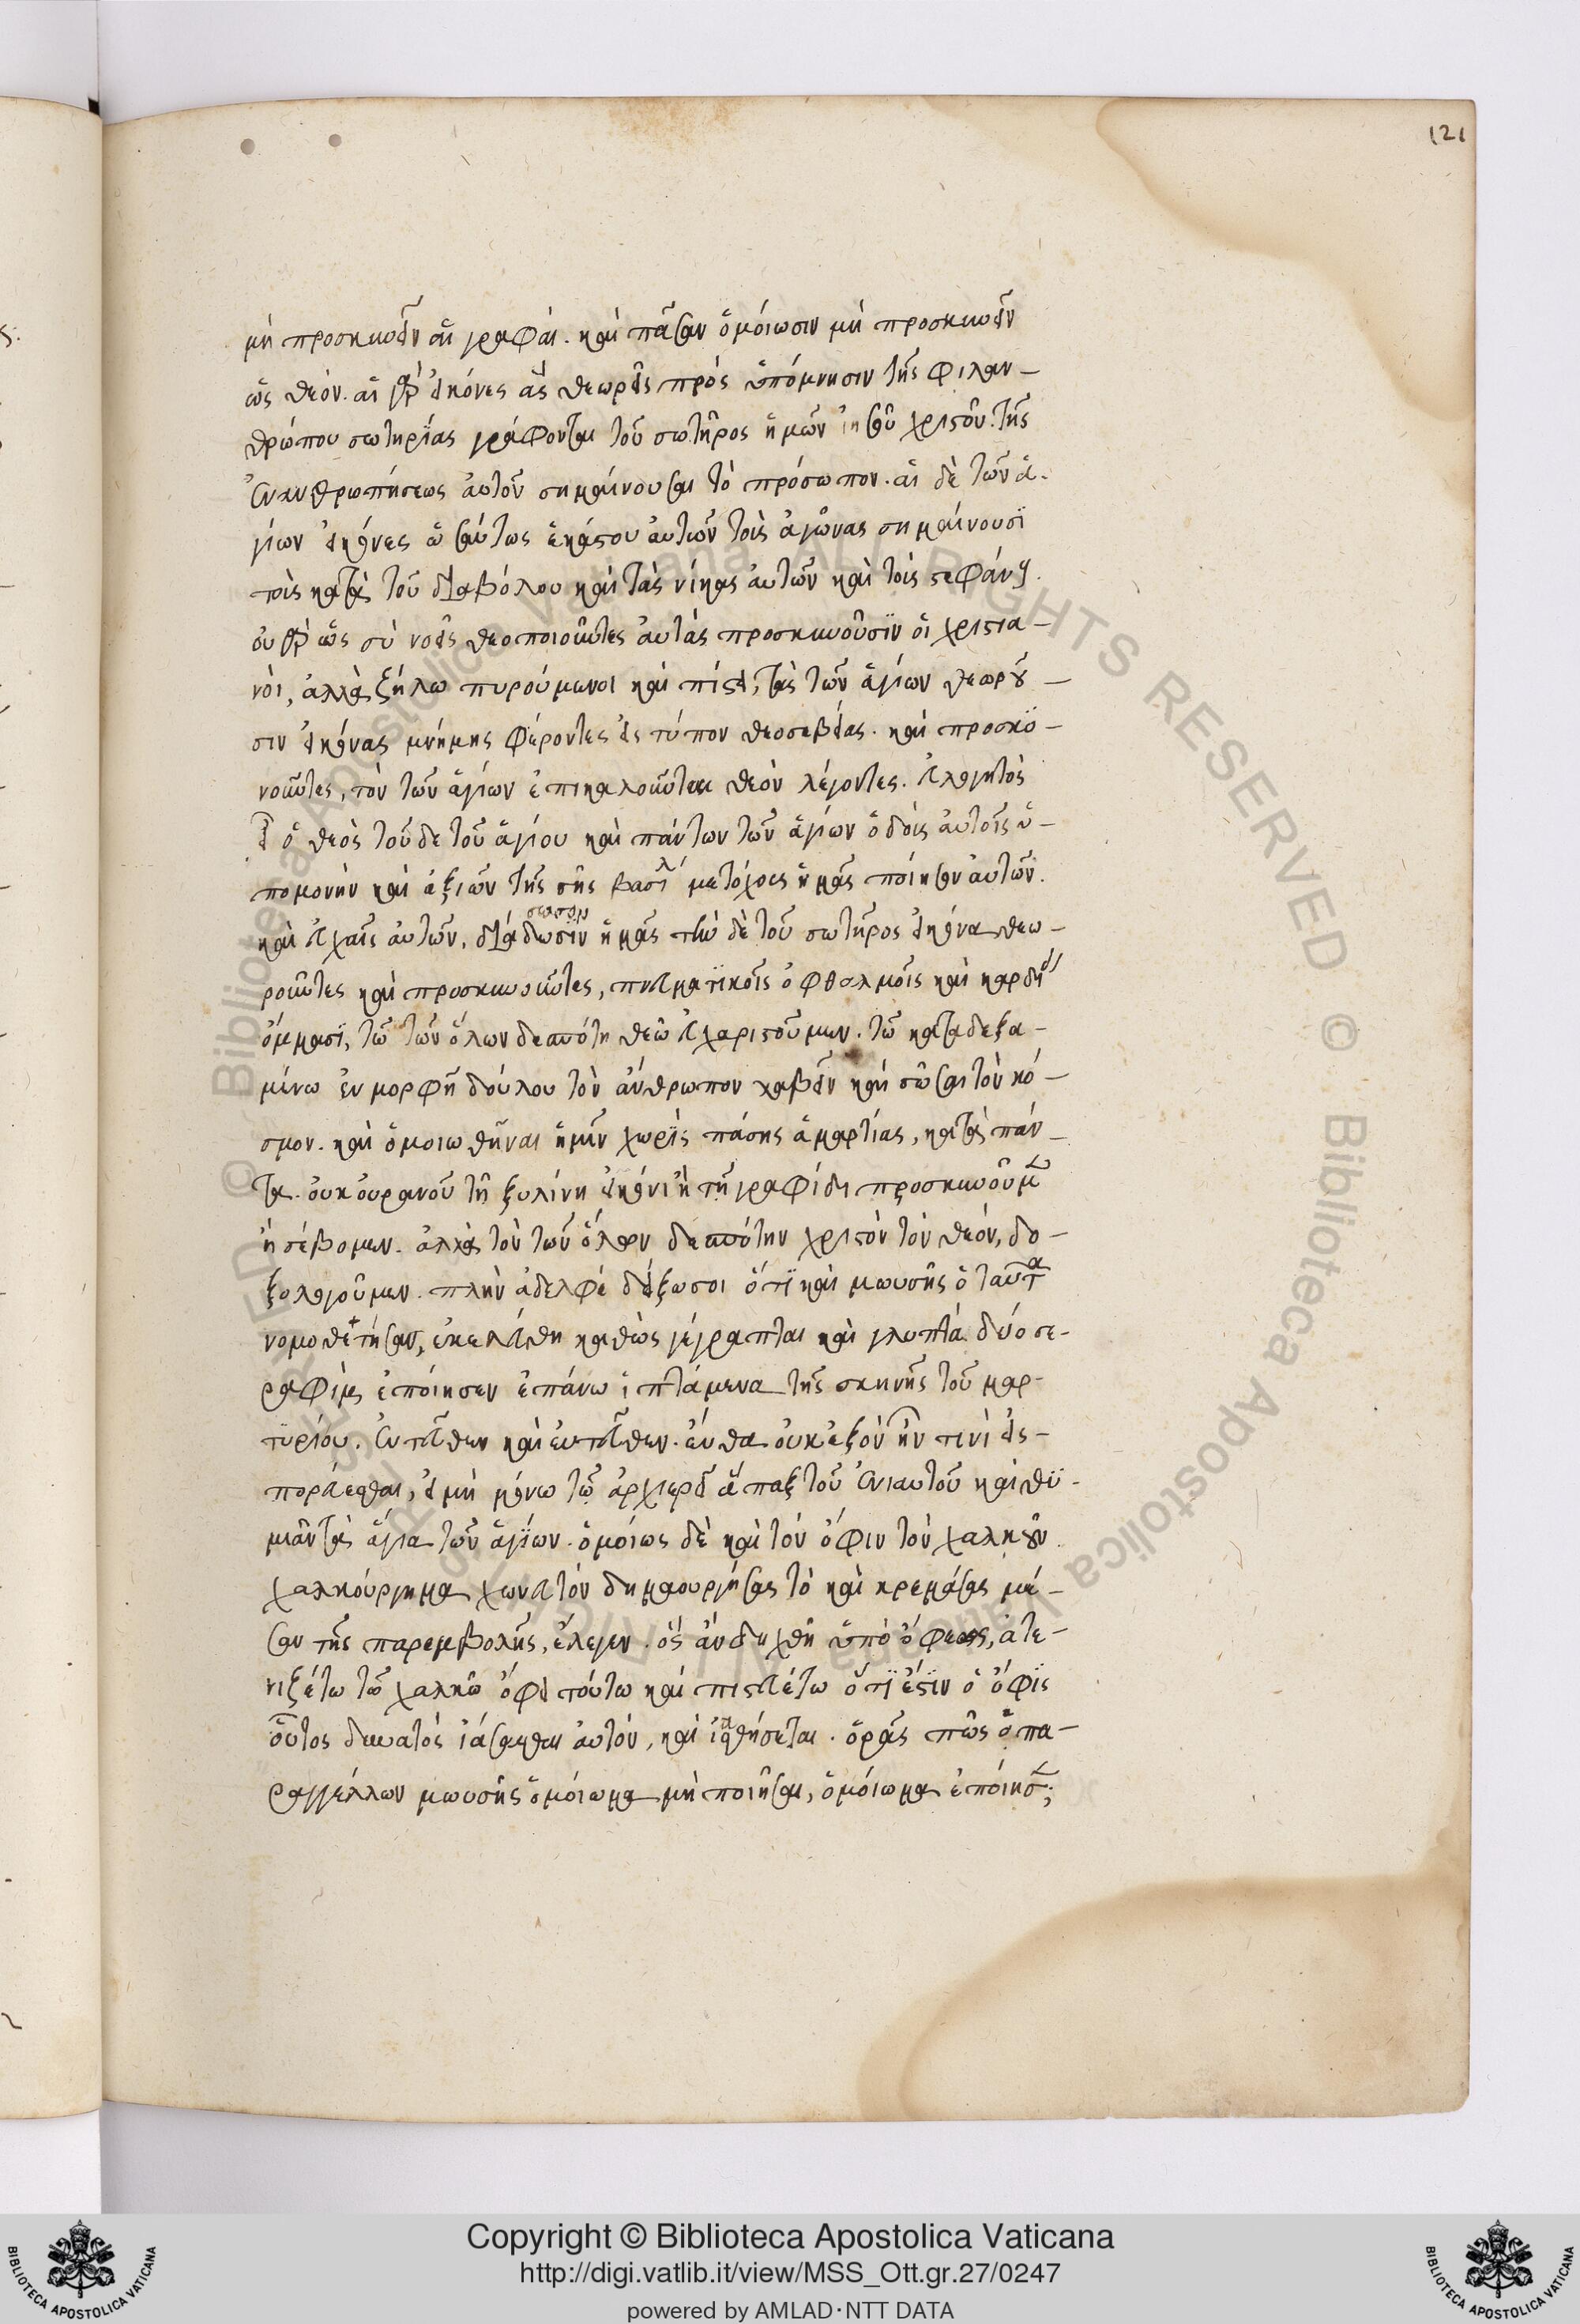 121
μὴ προσκυνεῖν αἱ γραφαί. καὶ πᾶσαν ὁμοίωσιν μὴ προσκυνεῖν
ὡς θεόν. αἱ γὰρ εἰκόνες ἃς θεωρεῖς πρὸς ὑπόμνησιν τῆς φιλαν-
θρώπου σωτηρίας γράφονται τοῦ σωτῆρος ἡμῶν ἰησοῦ χριστοῦ. τῆς
ἐνανθρωπήσεως αὐτοῦ σημαίνουσαι τὸ πρόσωπον. αἱ δὲ τῶν ἁ-
γίων εἰκόνες ὡσαύτως ἑκάστου αὐτῶν τοὺς ἀγῶνας σημαίνουσϊ
τοὺς κατὰ τοῦ διαβόλου καὶ τὰς νίκας αὐτῶν καὶ τοὺς στεφάνους.
οὐ γὰρ ὡς σὺ νοεῖς θεοποιοῦντες αὐτὰς προσκυνοῦσϊν οἱ χριστια-
νοὶ, ἀλλὰ ζήλω πυρούμενοι καὶ πίστει, τὰς τῶν ἁγίων θεωροῦ-
σιν εἰκόνας μνήμης φέροντες εἰς τύπον θεοσεβείας. καὶ προσκϋ-
νοῦντες, τὸν τῶν ἁγίων ἐπικαλοῦνται θεὸν λέγοντες. εὐλογητὸς
εἶ ὁ θεὸς τοῦδε τοῦ ἁγίου καὶ πάντων τῶν ἁγίων ὁ δοὺς αὐτοῖς ὑ-
πομονὴν καὶ ἀξιῶν τῆς σῆς βασιλ μετόχους ἡμᾶς ποίησον αὐτῶν.
καὶ εὐχαῖς αὐτῶν, διάδωσιν ἡμᾶς τὴν δὲ τοῦ σωτῆρος εἰκόνα θεω-
ροῦντες καὶ προσκυνοῦντες, πνευματϊκοῖς ὀφθαλμοῖς καὶ καρδίας
ὄμμασϊ, τῶ τῶν ὅλων δεσπότη θεῶ εὐχαριστοῦμεν. τῶ καταδεξα-
μένω ἐν μορφῇ δούλου τὸν ἄνθρωπον λαβεῖν καὶ σῶσαι τὸν κό-
σμον. καὶ ὁμοιωθῆναι ἡμῖν χωρὶς πάσης ἁμαρτίας, κατὰ πάν-
τα. οὐκ οὐρανοῦ τῆ ξυλίνη εἰκόνι ἢ τῆ γραφίδι προσκυνοῦμεν
ἢ σέβομεν. ἀλλὰ τὸν τῶν ὅλων δεσπότην χριστὸν τὸν θεόν, δο-
ξολογοῦμεν. πλὴν ἀδελφὲ δείξω σοι ὅτϊ καὶ μωυσῆς ὁ ταῦτα
νομοθετήσας, ἐκελεύθη καθὼς γέγραπται καὶ γλυπτὰ δύο σε-
ραφὶμ ἐποίησεν ἐπάνω ἱπτάμενα τῆς σκηνῆς τοῦ μαρ-
τϋρίου. ἐντεῦθεν καὶ ἐντεῦθεν. ἔνθα οὐκ ἐξὸν ἦν τινὶ εἰσ-
πορεύεσθαι, εἰ μὴ μόνω τῶ ἀρχιερεῖ ἅπαξ τοῦ ἐνιαυτοῦ καὶ θϋ-
μιᾶν τὰ ἅγια τῶν ἁγίων. ὁμοίως δὲ καὶ τὸν ὄφιν τὸν χαλκοῦν
χαλκούργημα χωνευτὸν δημιουργήσας τὸ καὶ κρεμάσας μέ-
σον τῆς παρεμβολῆς, ἔλεγεν. ὃς ἂν δηχθῆ ὑπὸ ὄφεως, ἀτε-
νιζέτω τῶ χαλκῶ ὄφει τούτω καὶ πιστευέτω ὅτϊ ἐστϊν ὁ ὄφϊς
οὗτος δυνατὸς ἰάσασθαι αὐτόν, καὶ ἰαθήσεται. ὁρᾶς πῶς ὁ πα-
ραγγέλλων μωυσῆς ὁμοίωμα μὴ ποιῆσαι, ὁμοίωμα ἐποίησεν;
Copyright © Biblioteca Apostolica Vaticana
http://digi.vatlib.it/view/MSS_Ott.gr.27/0247
powered by AMLAD·NTT DATA